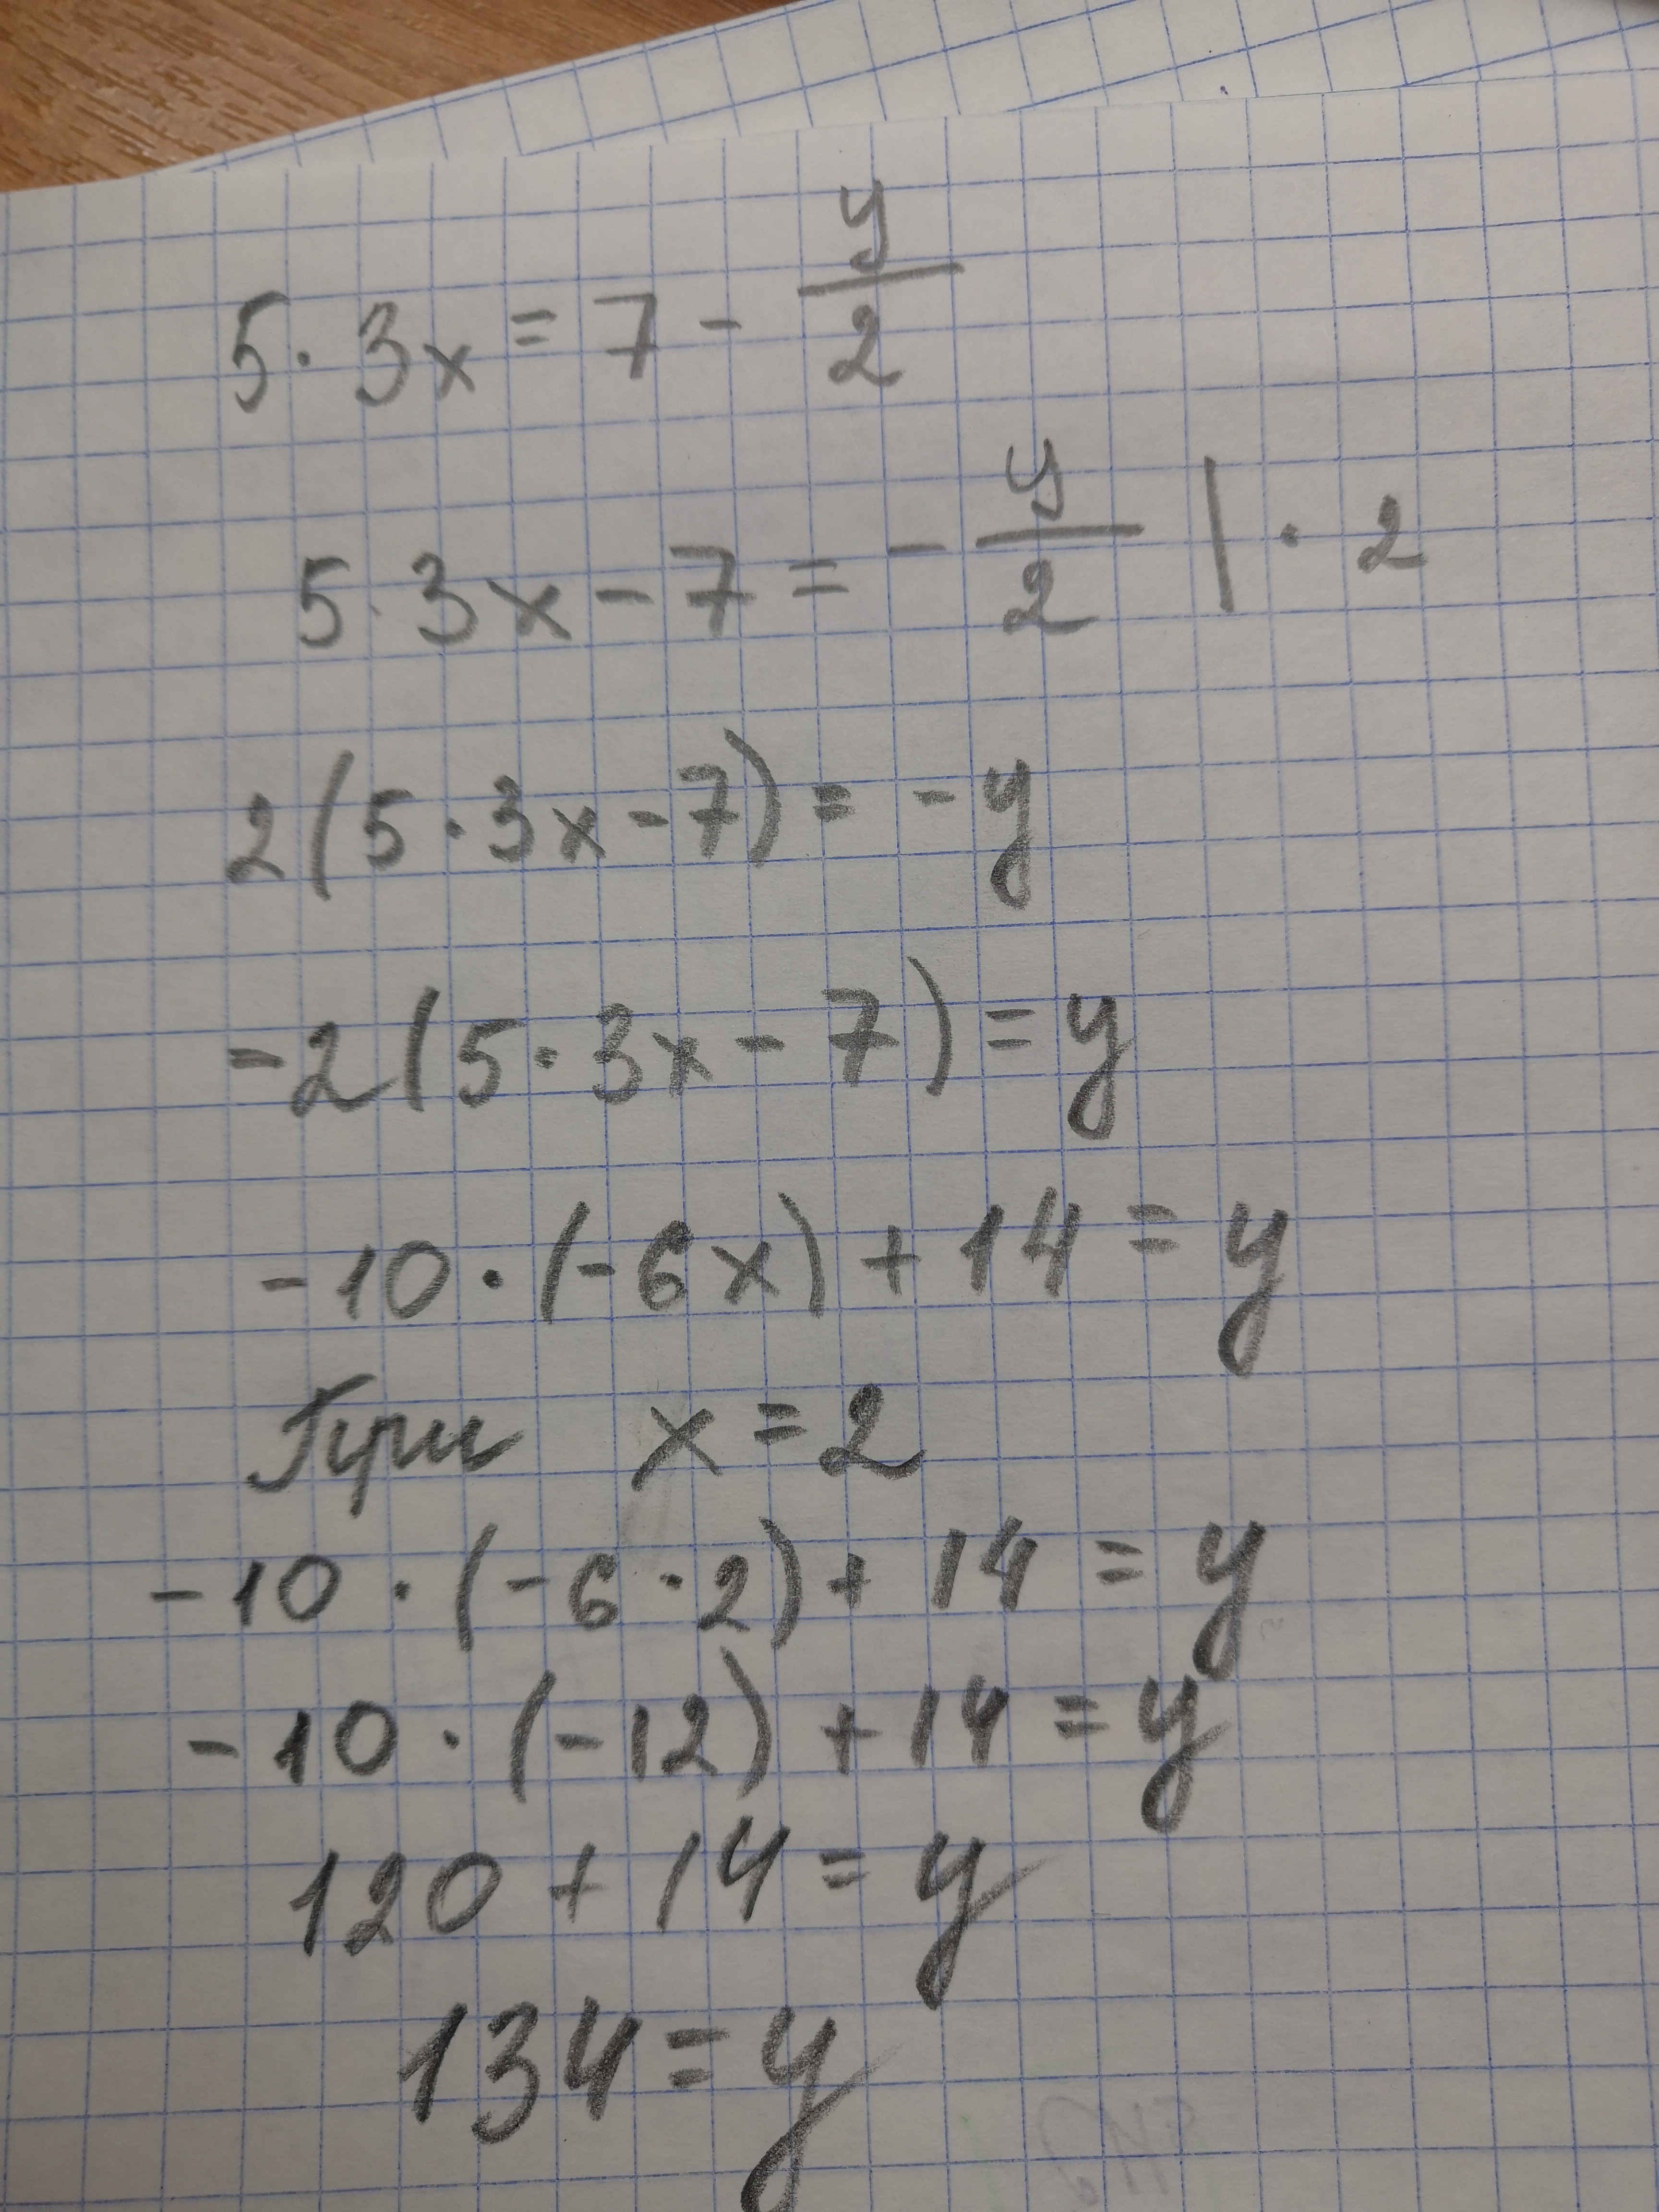 5 · 3x = 7 - y/2
5 · 3x - 7 = - y/2 | · 2
2(5 · 3x - 7) = - y
-2(5 · 3x - 7) = y
-10 · (-6x) + 14 = y
При x = 2
-10 · (-6 · 2) + 14 = y
-10 · (-12) + 14 = y
120 + 14 = y
134 = y